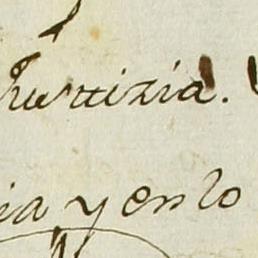 Jurtizia.
ia y en lo